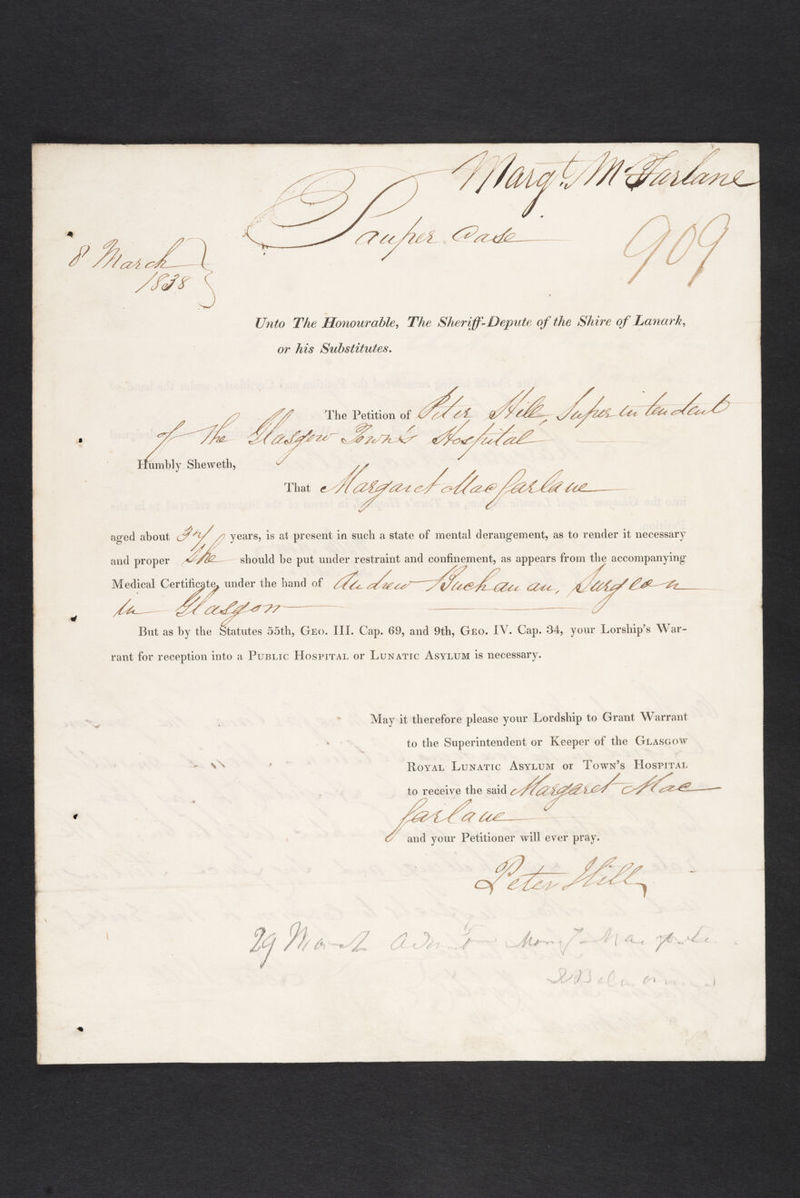 Margt McFarlane
Pauper Case
909
8 March
1838
Unto The Honourable, The Sheriff-Depute of the Shire of Lanark,
or his Substitutes.
The Petition of Peter Hill, Superintendent
of The Glasgow Town's Hospital
Humbly Sheweth,
That Margaret Macfarlane
aged about years, is at present in such a state of mental derangement, as to render it necessary
and proper She should be put under restraint and confinement, as appears from the accompanying
Medical Certificate, under the hand of Andrew Buchanan, Surgeon
in Glasgow
But as by the Statutes 55th, Geo. III. Cap. 69, and 9th, Geo. IV. Cap. 34, your Lorship's War-
rant for reception into a Public Hospital or Lunatic Asylum is necessary.
May it therefore please your Lordship to Grant Warrant
to the Superintendent or Keeper of the Glasgow
Royal Lunatic Asylum or Town's Hospital
to receive the said Margaret Mac
farlane
and your Petitioner will ever pray.
Peter Hill
29 March